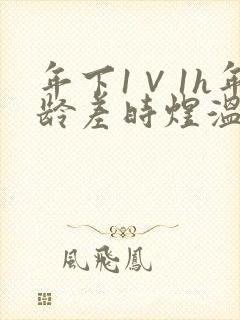 年下1V1h年
龄差时煜温
風飛鳳